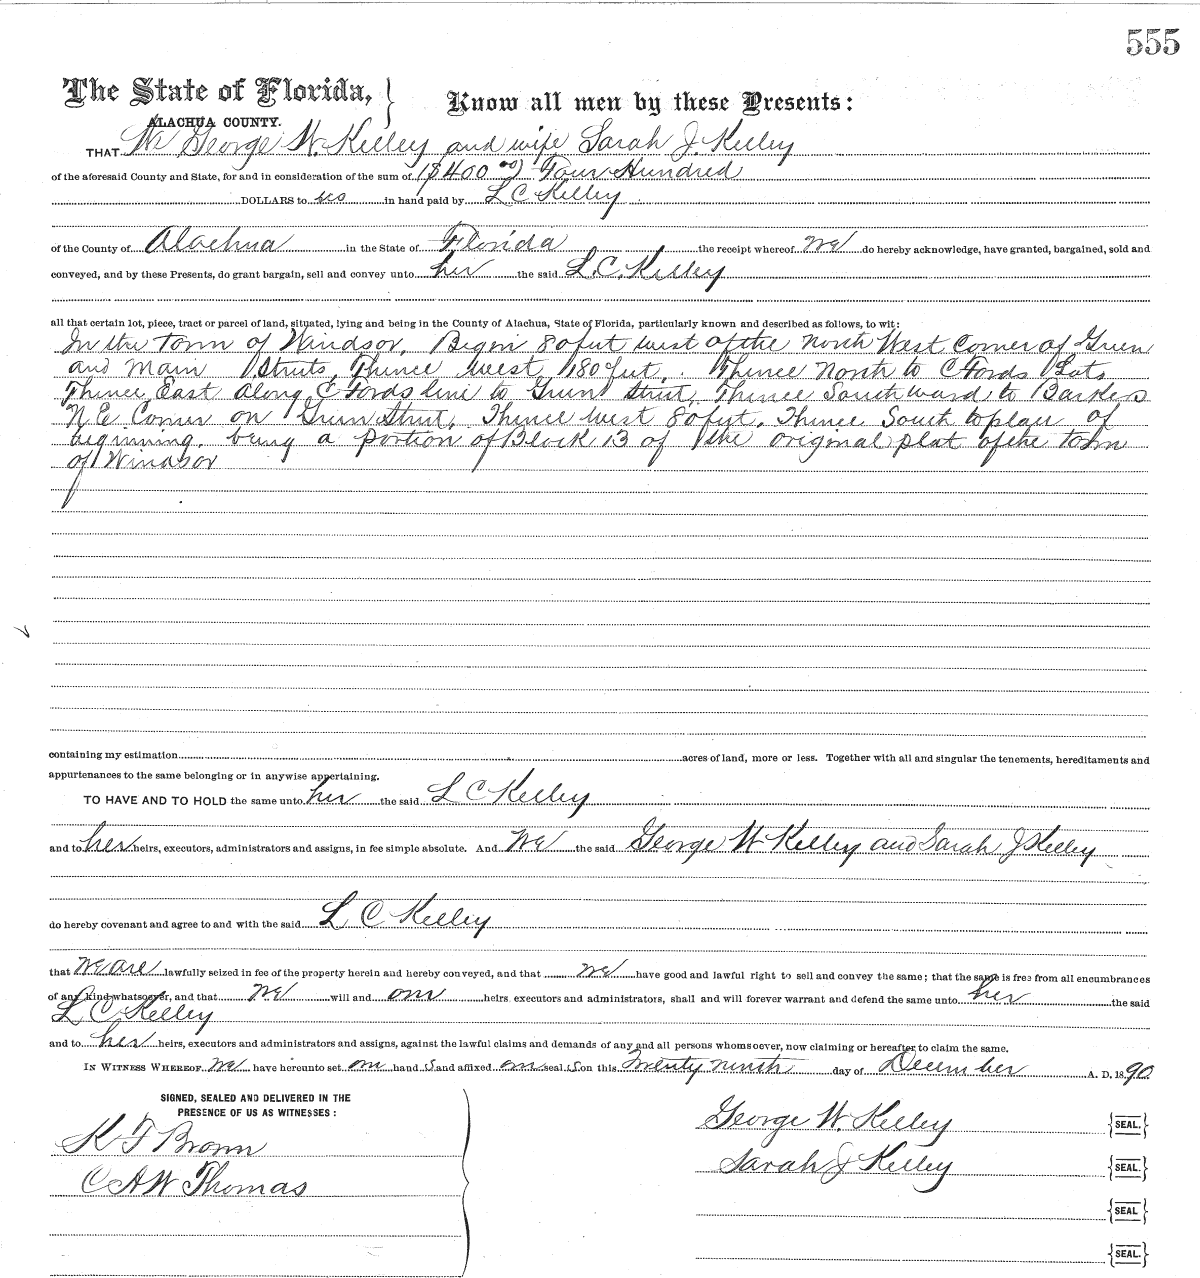 555
The State of Florida, } Know all men by these Presents:
ALACHUA COUNTY.
THAT We George W. Kelley and wife Sarah J. Kelley
of the aforesaid County and State, for and in consideration of the sum of ($400.00) Four Hundred
DOLLARS to us in hand paid by L C Kelley
of the County of Alachua in the State of Florida the receipt whereof we do hereby acknowledge, have granted, bargained, sold and
conveyed, and by these Presents, do grant bargain, sell and convey unto her the said L. C. Kelley
all that certain lot, piece, tract or parcel of land, situated, lying and being in the County of Alachua, State of Florida, particularly known and described as follows, to wit:
In the town of Windsor, Begin 80 feet west of the North West Corner of Green
and Main Streets, Thence west 180 feet. Thence North to C Fords Lots
Thence East along C Fords line to Green Street, Thence Southward to Barkers
N.E Corner on Green Street, Thence west 80 feet. Thence South to place of
beginning. being a portion of Block 13 of the original plat of the town
of Windsor
containing my estimation acres of land, more or less. Together with all and singular the tenements, hereditaments and
appurtenances to the same belonging or in anywise appertaining.
TO HAVE AND TO HOLD the same unto her the said L C Kelley
and to her heirs, executors, administrators and assigns, in fee simple absolute. And We the said George W Kelley and Sarah J Kelley
do hereby covenant and agree to and with the said L C Kelley
that we are lawfully seized in fee of the property herein and hereby conveyed, and that we have good and lawful right to sell and convey the same; that the same is free from all encumbrances
of any kind whatsoever, and that we will and our heirs executors and administrators, shall and will forever warrant and defend the same unto her the said
L C Kelley
and to her heirs, executors and administrators and assigns, against the lawful claims and demands of any and all persons whomsoever, now claiming or hereafter to claim the same.
IN WITNESS WHEREOF we have hereunto set our hand s and affixed our seal s on this Twenty ninth day of December A. D. 1890
SIGNED, SEALED AND DELIVERED IN THE
PRESENCE OF US AS WITNESSES:
K F Brown
C A W Thomas
George W. Kelley {SEAL.}
Sarah J Kelley {SEAL.}
{SEAL}
{SEAL.}